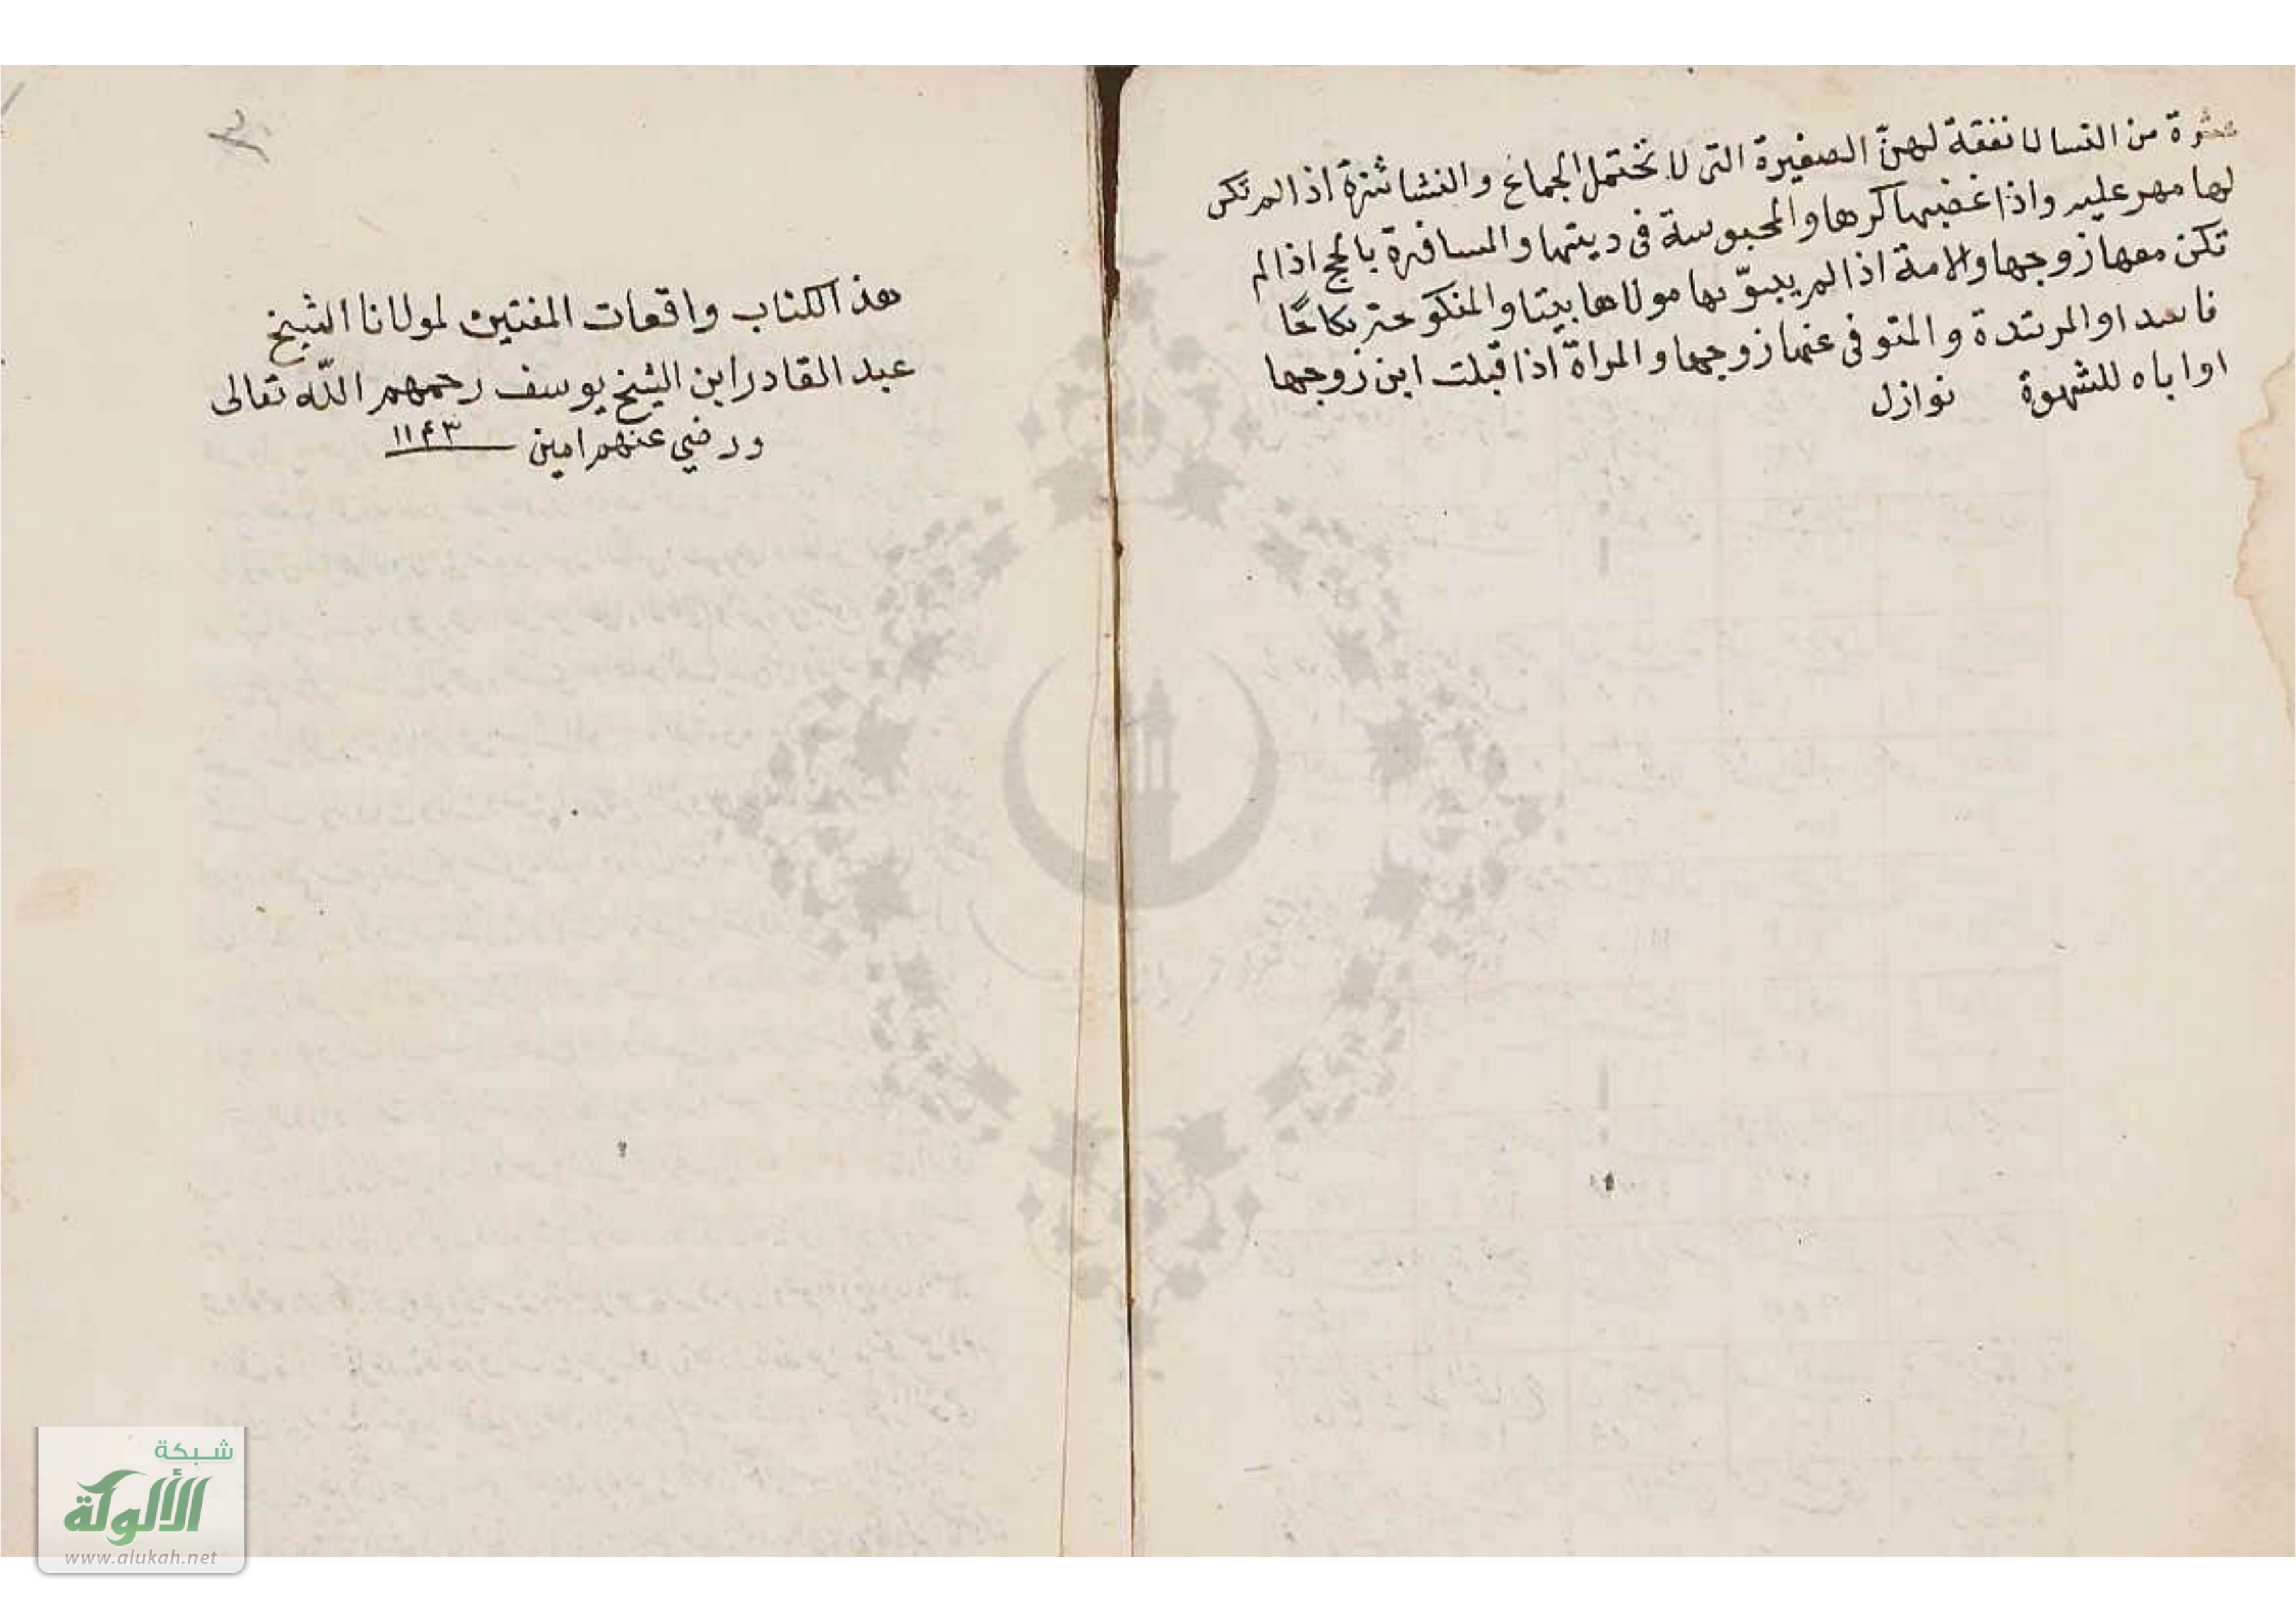 عشرة من النسا لا نفقة لهنّ الصغيرة التى لا تحتمل الجماع والنشاشزة اذا لم تكن
لها مهر عليه واذا غضبها كرها والمحبوسة فى ديتها والمسافرة بالحج اذا لم
تكن معها زوجها والامة اذا لم يبوّ بها مولاها بيتا والمنكوحة نكاحًا
فاسدا والمرتدة والمتوفى عنها زوجها والمراة اذا قبلت ابن زوجها
او اباه للشهوة نوازل
هذا الكتاب واقعات المفتين لمولانا الشيخ
عبد القادر ابن الشيخ يوسف رحمهم اللّه تعالى
ورضي عنهم امين ١١٤٣
شبكة
الألوكة
www.alukah.net